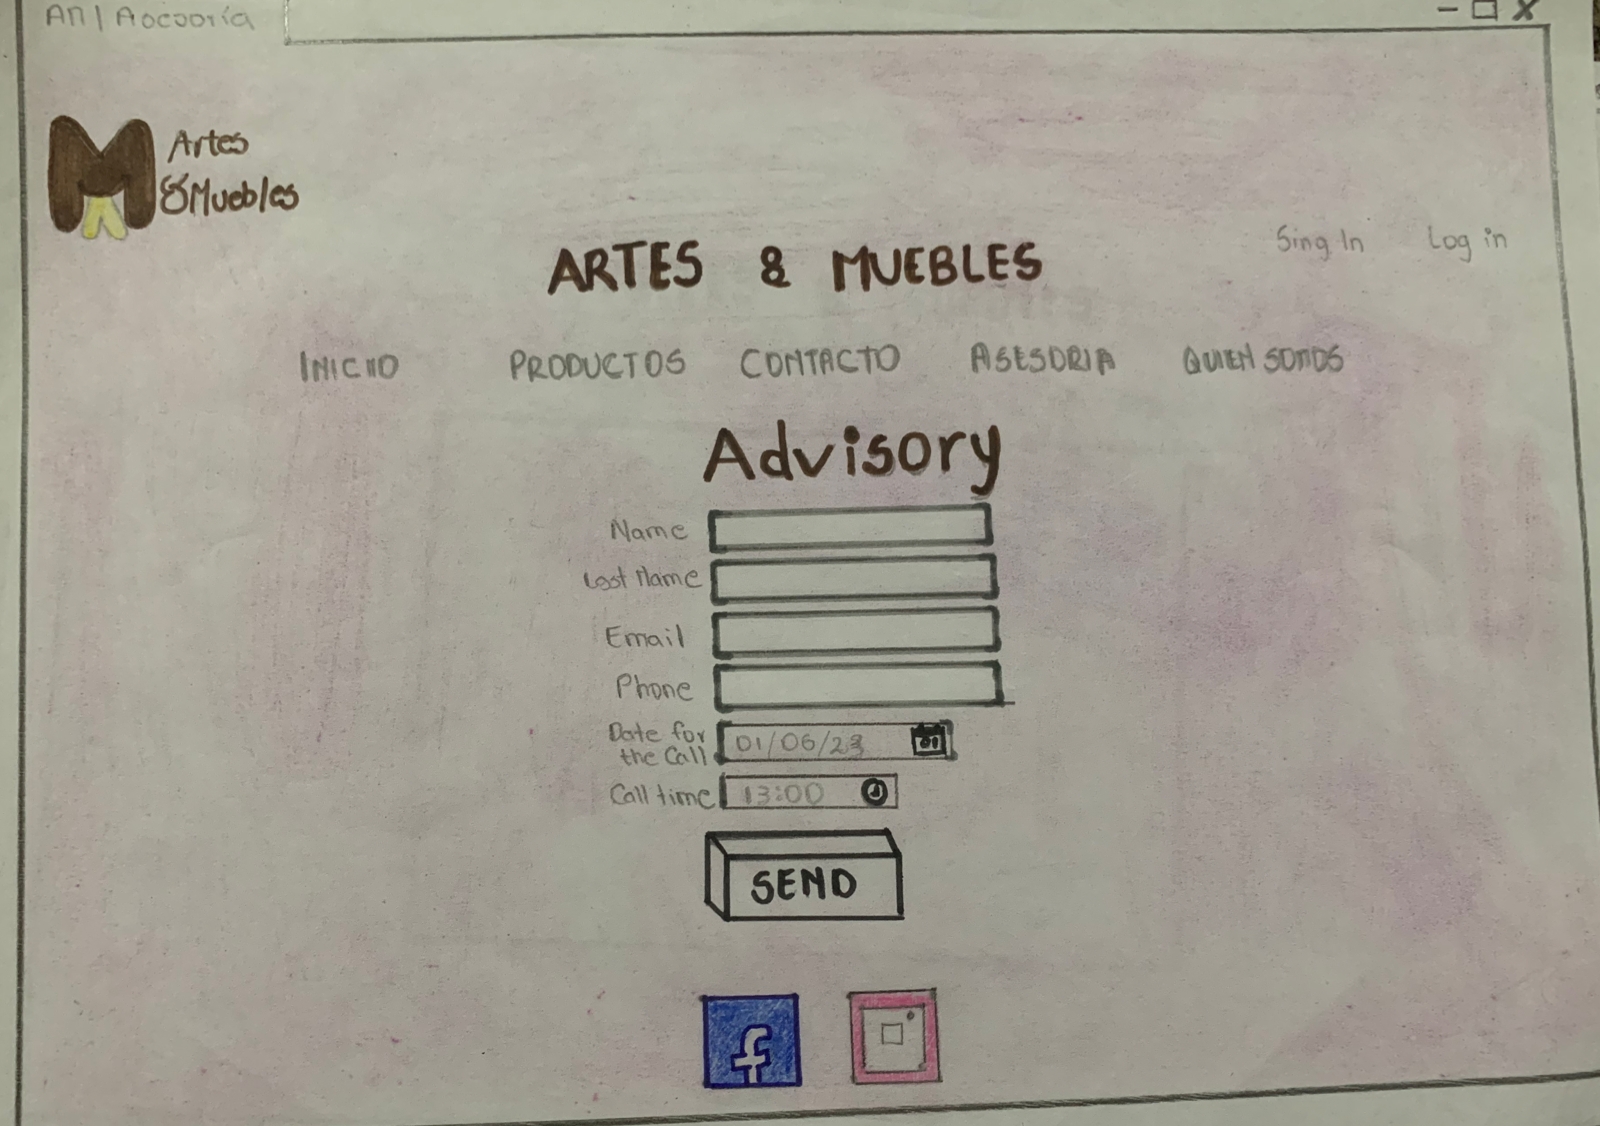 Artes
& Muebles
ARTES & MUEBLES
Sing In Log in
INICIO PRODUCTOS CONTACTO ASESORIA QUIEN SOMOS
Advisory
Name
Last Name
Email
Phone
Date for
the Call
01/06/23
Call time 13:00
SEND
f